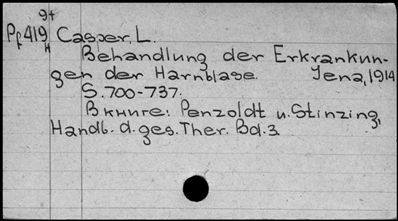 9t
Pf419 Casper, L.
н
Behandlung der Erkrankun-
gen der Harnblase. Jena, 1914
S. 700-737.
В книге: Penzoldt u. Stinzing,
Handb. d. ges. Ther. Bd. 3.